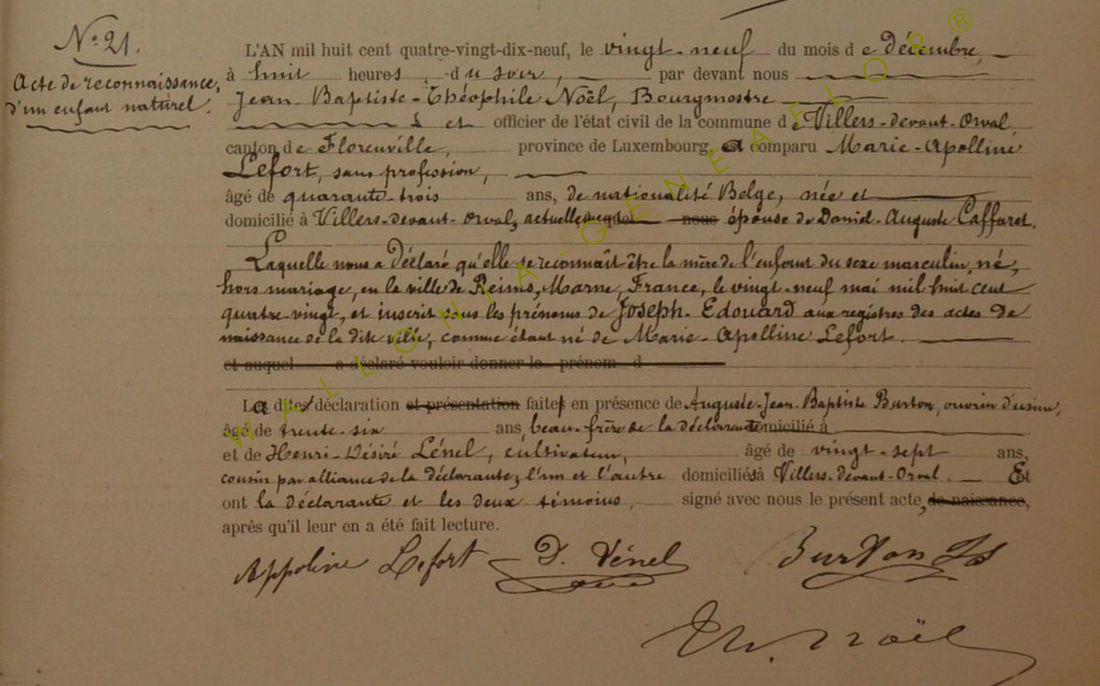 N° 21.
Acte de reconnaissance,
d'un enfant naturel.
L'AN mil huit cent quatre-vingt-dix-neuf, le vingt-neuf du mois de Décembre,
à huit heures, du soir, par devant nous
Jean-Baptiste-Théophile Noël, Bourgmestre
et officier de l'état civil de la commune de Villers-devant-Orval,
canton de Florenville, province de Luxembourg, a comparu Marie-Apolline
Lefort, sans profession,
âgé de quarante-trois ans, de nationalité Belge, née et
domicilié à Villers-devant-Orval, actuellement épouse de Daniel-Auguste Caffaret.
Laquelle nous a déclaré qu'elle se reconnaît être la mère de l'enfant du sexe masculin, né,
hors mariage, en la ville de Reims, Marne, France, le vingt-neuf mai mil huit cent
quatre-vingt, et inscrit sous les prénoms de Joseph-Edouard aux registres des actes de
naissance de la dite ville, comme étant né de Marie-Apolline Lefort.
et auquel a déclaré vouloir donner le prénom d
La dite déclaration et présentation faite en présence de Auguste-Jean-Baptiste Burton, ouvrier d'usine,
âgé de trente-six ans, beau-frère de la déclarante domicilié à
et de Henri-Désiré Lénel, cultivateur, âgé de vingt-sept ans,
cousin par alliance de la déclarante, l'un et l'autre domiciliés à Villers-devant-Orval. Et
ont la déclarante et les deux témoins, signé avec nous le présent acte, de naissance,
après qu'il leur en a été fait lecture.
Appoline Lefort D. Lénel Burton
Th. Noël
WALLONIA GENEALOR ®